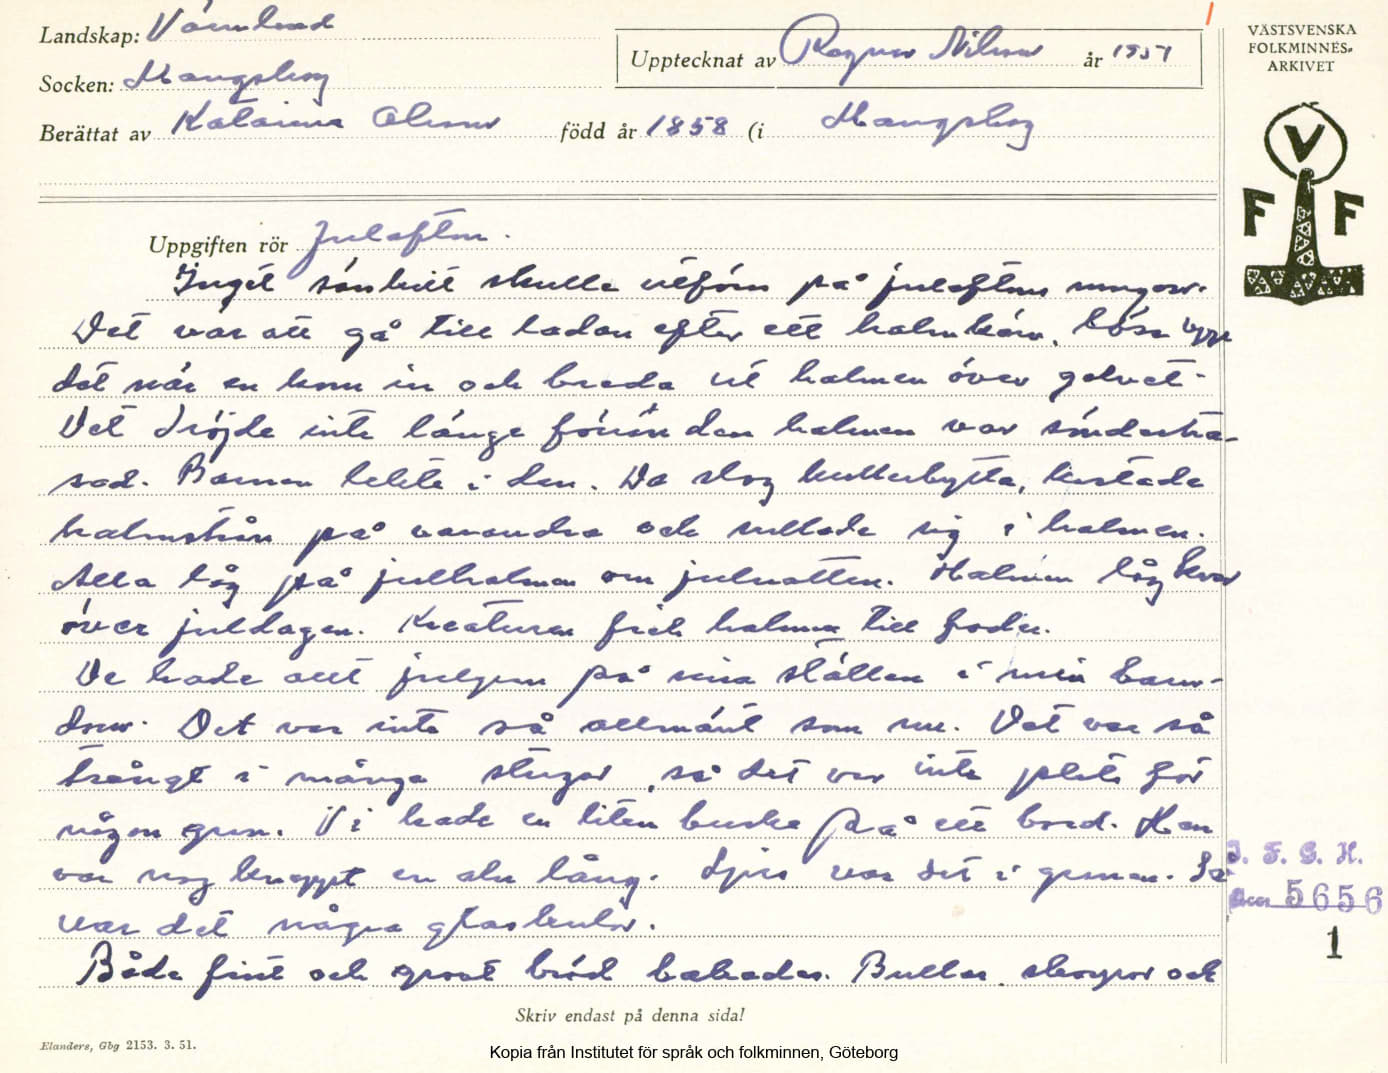 Landskap: Värmland
Upptecknat av Ragnar Nilsson år 1957
Socken: Mangskog
Berättat av Katarina Olsson född år 1858 (i Mangskog
VÄSTSVENSKA
FOLKMINNES-
ARKIVET
V
F F
Uppgiften rör Julafton.
Inget särskilt skulle utföras på julaftons morgon.
Det var att gå till ladan efter ett halmkärv, lösa upp
det när en kom in och breda ut halmen över golvet.
Det dröjde inte länge förrän den halmen var söndertra-
sad. Barnen lekte i den. De slog kullerbytta, kastade
halmstrån på varandra och rullade sig i halmen.
Alla låg på julhalmen om julnatten. Halmen låg kvar
över juldagen. Kreaturen fick halmen till foder.
De hade allt julgran på sina ställen i min barn-
dom. Det var inte så allmänt som nu. Det var så
trångt i många stugor, så det var inte plats för
någon gran. Vi hade en liten buske på ett bord. Han
var nog knappt en aln lång. Ljus var det i granen. Så
var det några glaskulor.
Både fint och grovt bröd bakades. Bullar, skorpor och
I. F. G. H.
Acc 5656
1
Skriv endast på denna sida!
Elanders, Gbg 2153. 3. 51.
Kopia från Institutet för språk och folkminnen, Göteborg